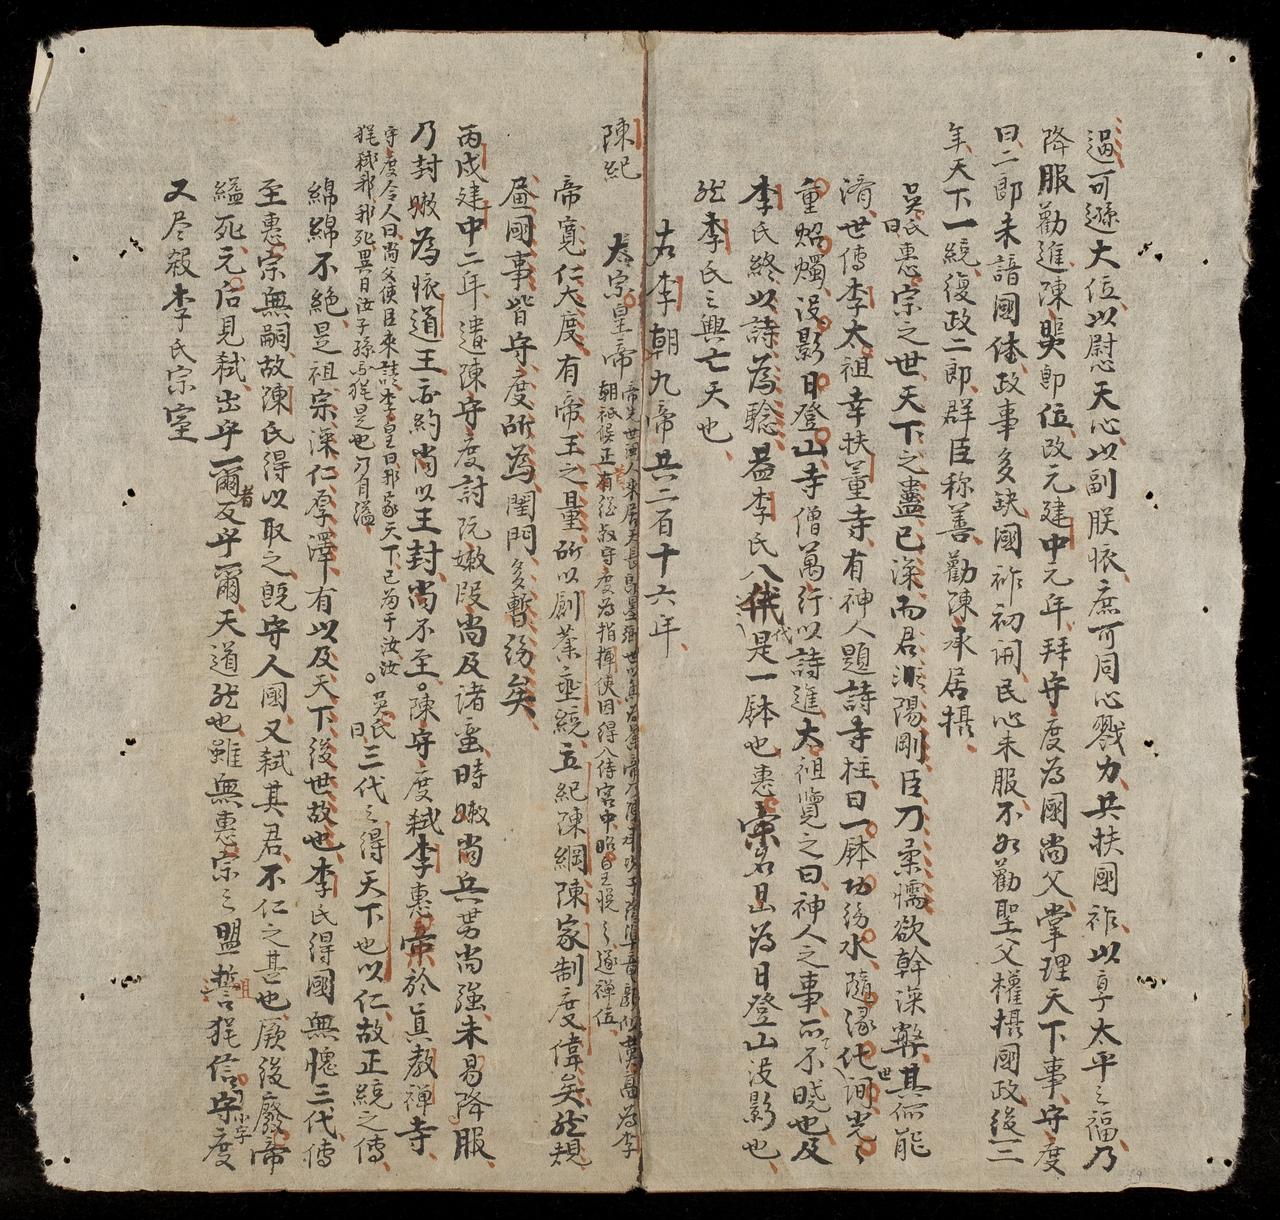 遏可遜大位以慰天心以副朕依庶可同心戮力共扶國祚以享太平之福乃
降服勸進陳㷃即位改元建中元年拜守度為國尚父掌理天下事守度
曰二郎未諳國体政事多缺國祚初開民心未服不如勸聖父權摂國政後二三
年天下一統復政二郎群臣称善勸陳承居摂
吳氏曰惠宗之世天下之蠱已深而君非陽剛臣乃柔懦欲幹深弊其何能
濟世傳李太祖幸扶董寺有神人題詩寺柱曰一缽功德水隨緣化世間光々
重照燭没影日登山寺僧萬行以詩進太祖覽之曰神人之事所不曉也及
李氏終以詩為驗蓋李氏八代是一缽也惠宗名日山為日登山没影也
然李氏之興亡天也
右李朝九帝共二百十六年
陳紀
太宗皇帝
朝祗候正有従叔守度為指揮使因得入侍宮中昭皇悅之遂禅位
帝寬仁大度有帝王之量所以創業垂統立紀陳綱陳家制度偉矣然規
畫國事皆守度所為閨門多暫德矣
丙戌建中二年遣陳守度討阮嫩段尚及諸蛮時嫩尚兵势尚強未易降服
乃封嫩為懷道王亦約尚以王封尚不至陳守度弑李惠宗於真教禅寺
守度令人曰尚父使臣來請李皇曰那家天下已為于汝汝
猶弑我我死異日汝子孫亦猶是也乃自縊
吳氏曰三代之得天下也以仁故正統之傳
綿綿不絶是祖宗深仁厚澤有以及天下後世故也李氏得國無愧三代傳
至惠宗無嗣故陳氏得以取之既守人國又弑其君不仁之甚也厥後廢帝
縊死元后見弑出乎爾者反乎爾天道然也雖無惠宗之盟誓猶信守度
又尽殺李氏宗室